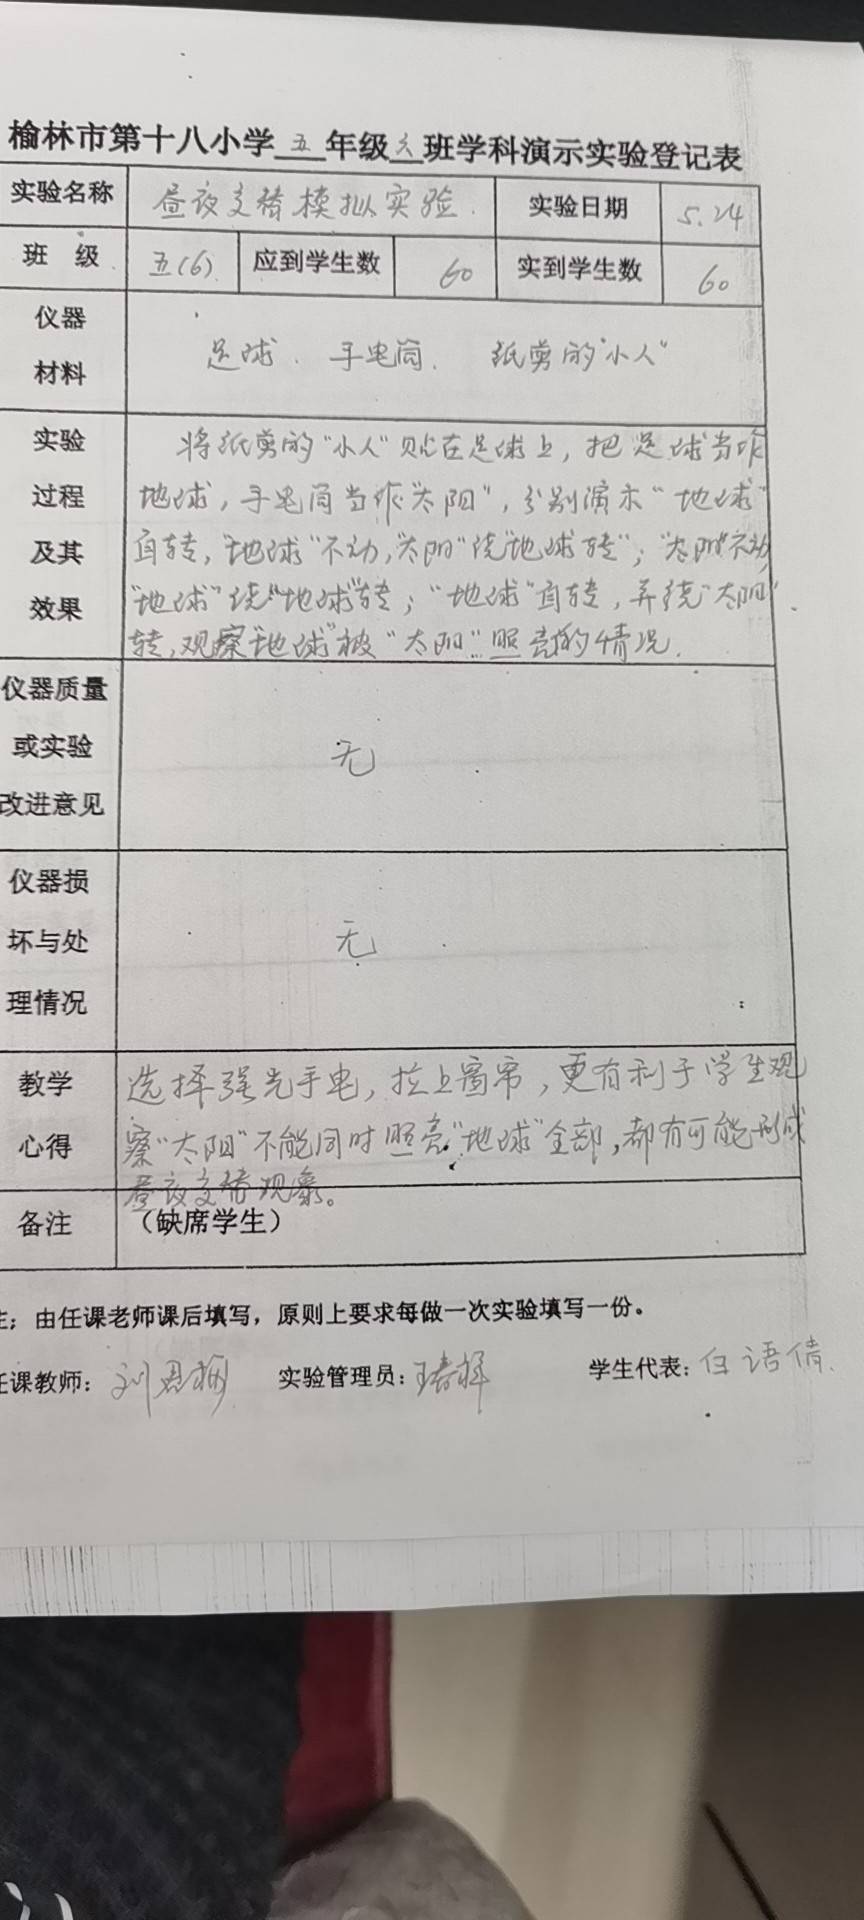 榆林市第十八小学五年级六班学科演示实验登记表
实验名称 昼夜交替模拟实验. 实验日期 5.24
班 级 五(6) 应到学生数 60 实到学生数 60
仪器
材料
足球、手电筒、纸剪的"小人"
实验
过程
及其
效果
将纸剪的"小人"贴在足球上，把足球当作
地球，手电筒当作"太阳"，分别演示"地球"
自转，"地球"不动，"太阳"绕"地球转"；"太阳"不动
"地球"绕"地球"转；"地球"自转，并绕"太阳"
转，观察"地球"被"太阳"照亮的情况.
仪器质量
或实验
改进意见
无
仪器损
坏与处
理情况
无
教学
心得
选择强光手电，拉上窗帘，更有利于学生观
察"太阳"不能同时照亮"地球"全部，都有可能形成
昼夜交替现象。
备注 （缺席学生）
注；由任课老师课后填写，原则上要求每做一次实验填写一份。
任课教师： 刘 实验管理员： 学生代表：白语倩